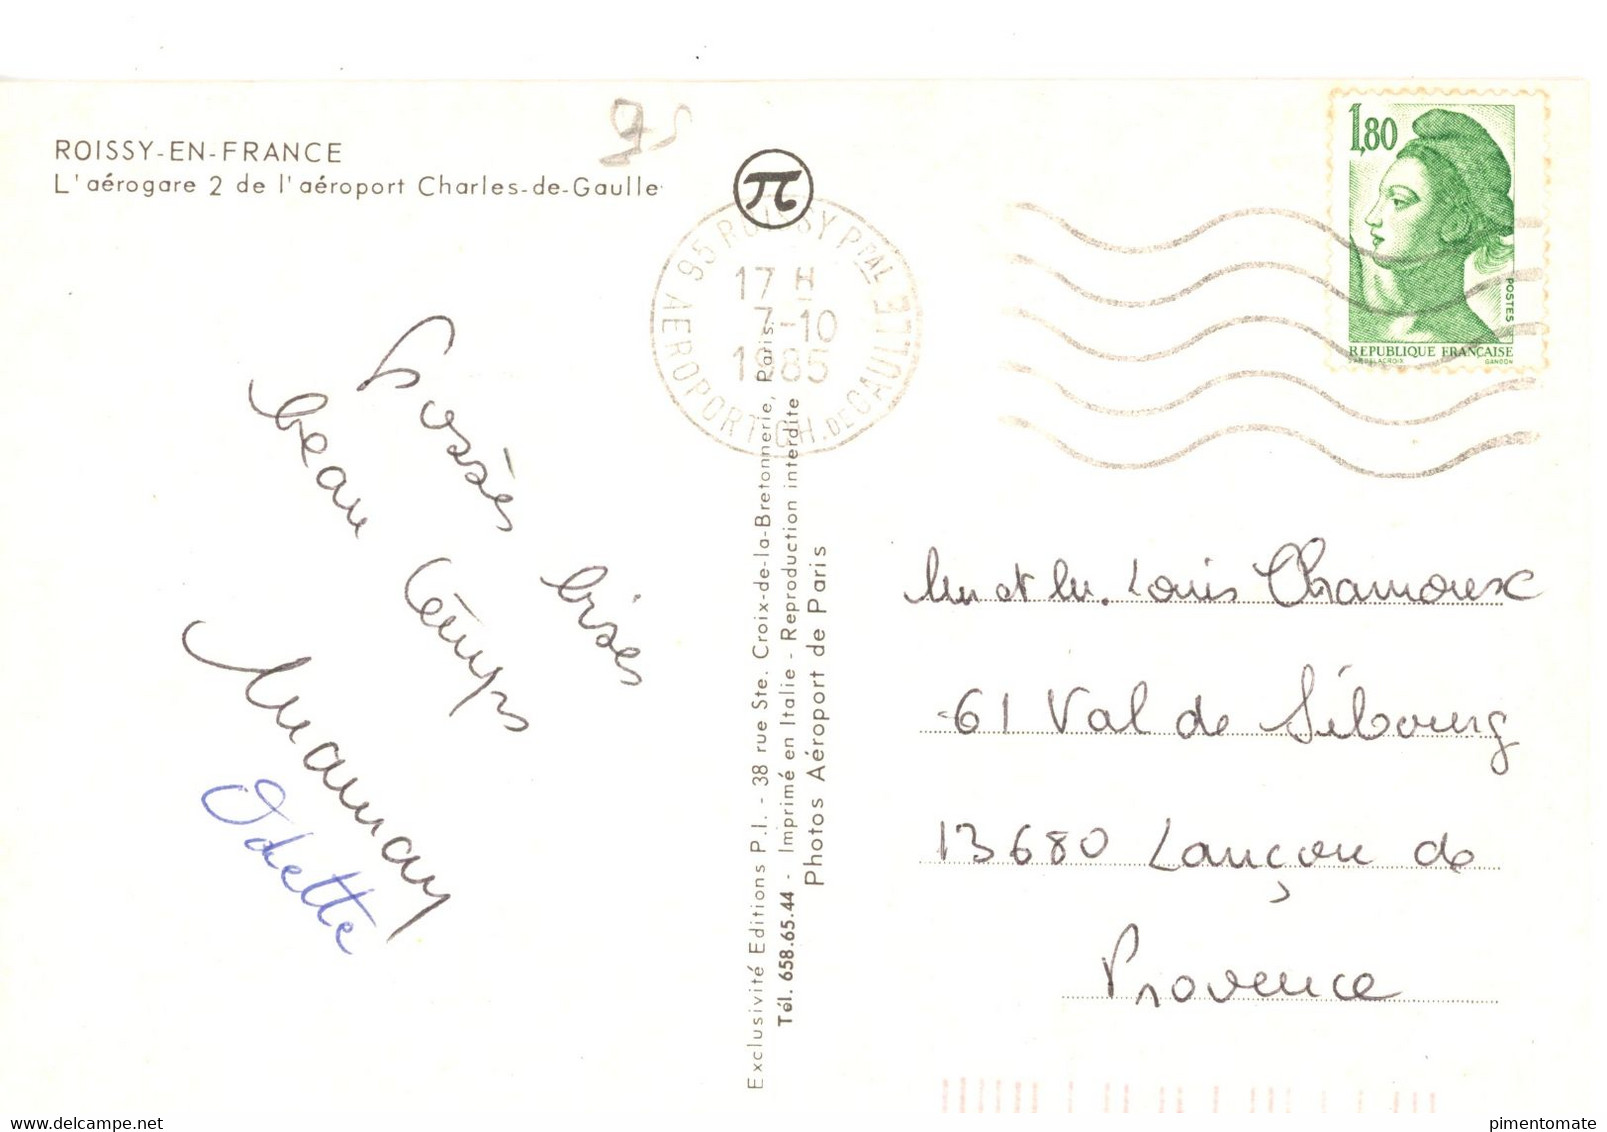 95
ROISSY-EN-FRANCE
L'aérogare 2 de l'aéroport Charles-de-Gaulle
π
95 ROISSY PPAL
AEROPORT CH. DE GAULLE
17 H
7-10
1985
1,80
POSTES
REPUBLIQUE FRANÇAISE
GANDON
bises
beau temps
Maman
Odette
Exclusivité Editions P.I. - 38 rue Ste. Croix-de-la-Bretonnerie, Paris.
Tél. 658.65.44 - Imprimé en Italie - Reproduction interdite
Photos Aéroport de Paris
et Louis Chamoux
61 Val de Sibourg
13680 Lançon de
Provence
pimentomate